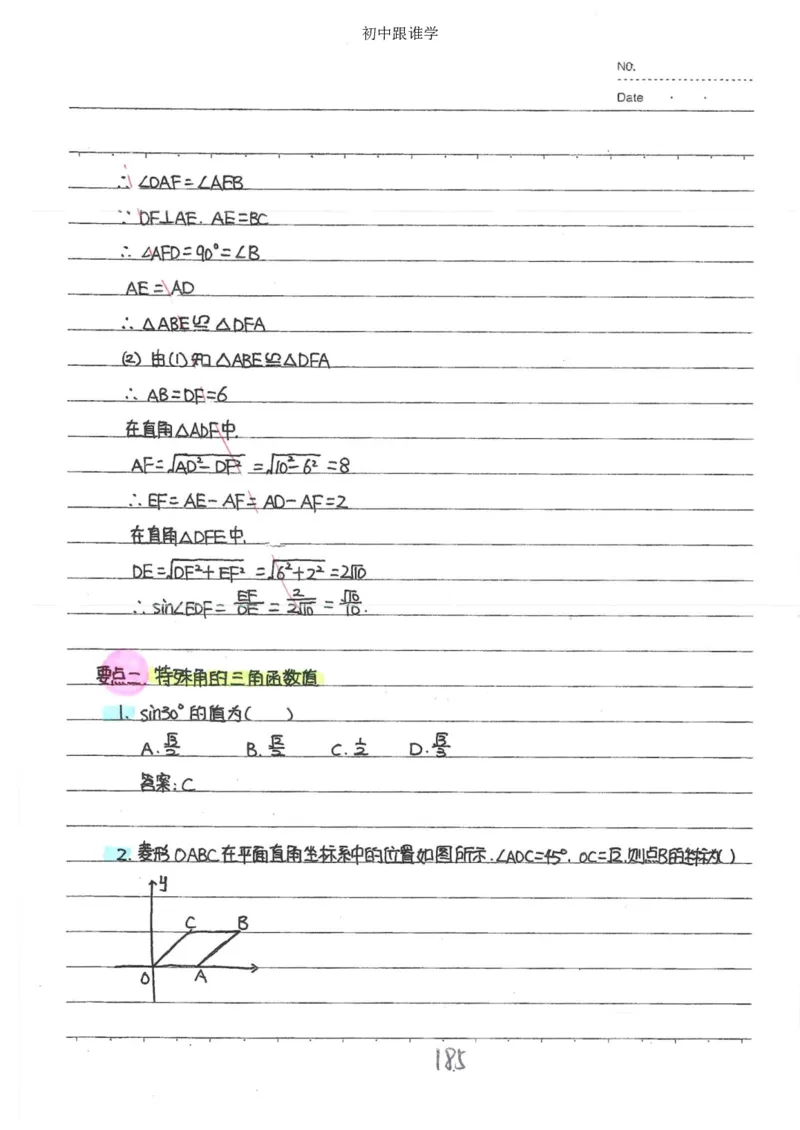 初中跟谁学
No.
Date · ·
∴ ∠DAF=∠AEB
∵ DF⊥AE. AE=BC
∴ ∠AFD=90°=∠B
AE=AD
∴ △ABE≌△DFA
(2) 由(1)知△ABE≌△DFA
∴ AB=DF=6
在直角△ADF中.
AF=√AD²-DF² =√10²-6² =8
∴ EF=AE-AF=AD-AF=2
在直角△DFE中.
DE=√DF²+EF² =√6²+2² =2√10
∴ sin∠EDF= EF/DE = 2/2√10 = √10/10.
要点二. 特殊角的三角函数值
1. sin30°的值为( )
A. √3/2 B. √2/2 C. 1/2 D. √3/3
答案:C
2. 菱形OABC在平面直角坐标系中的位置如图所示.∠AOC=45°. OC=√2.则点B的坐标为( )
y
C B
O A
185